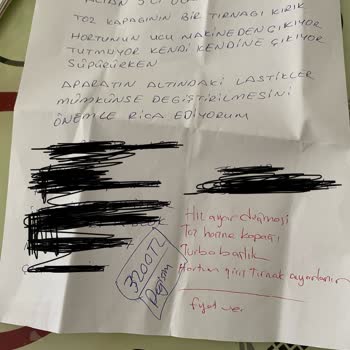 TOZ KAPAGININ BİR TIRNAGI KIRIK
HORTUNUN UCU MAKİNEDEN ÇIKIYOR
TUTMUYOR KENDİ KENDİNE ÇIKIYOR
SÜPÜRÜRKEN
APARATIN ALTINDAKİ LASTİKLER
MÜMKÜNSE DEGİŞTİRİLMESİNİ
ÖNEMLE RİCA EDİYORUM
Hız ayar düğmesi
Toz hazne kapağı
Turbo başlık
Hortum giriş tırnak ayarlanır
fiyat ver
3200 TL
Değişim